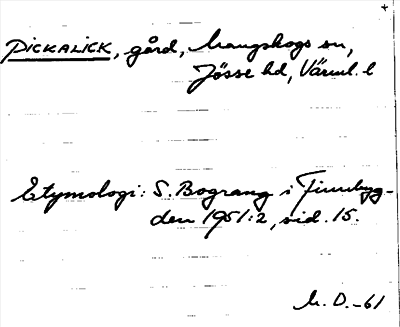 PICKALICK, gård, Mangskogs sn,
Jösse hd, Värml. l
Etymologi: S. Bograng i Finnbyg-
den 1951:2, sid. 15.
M. D. -61